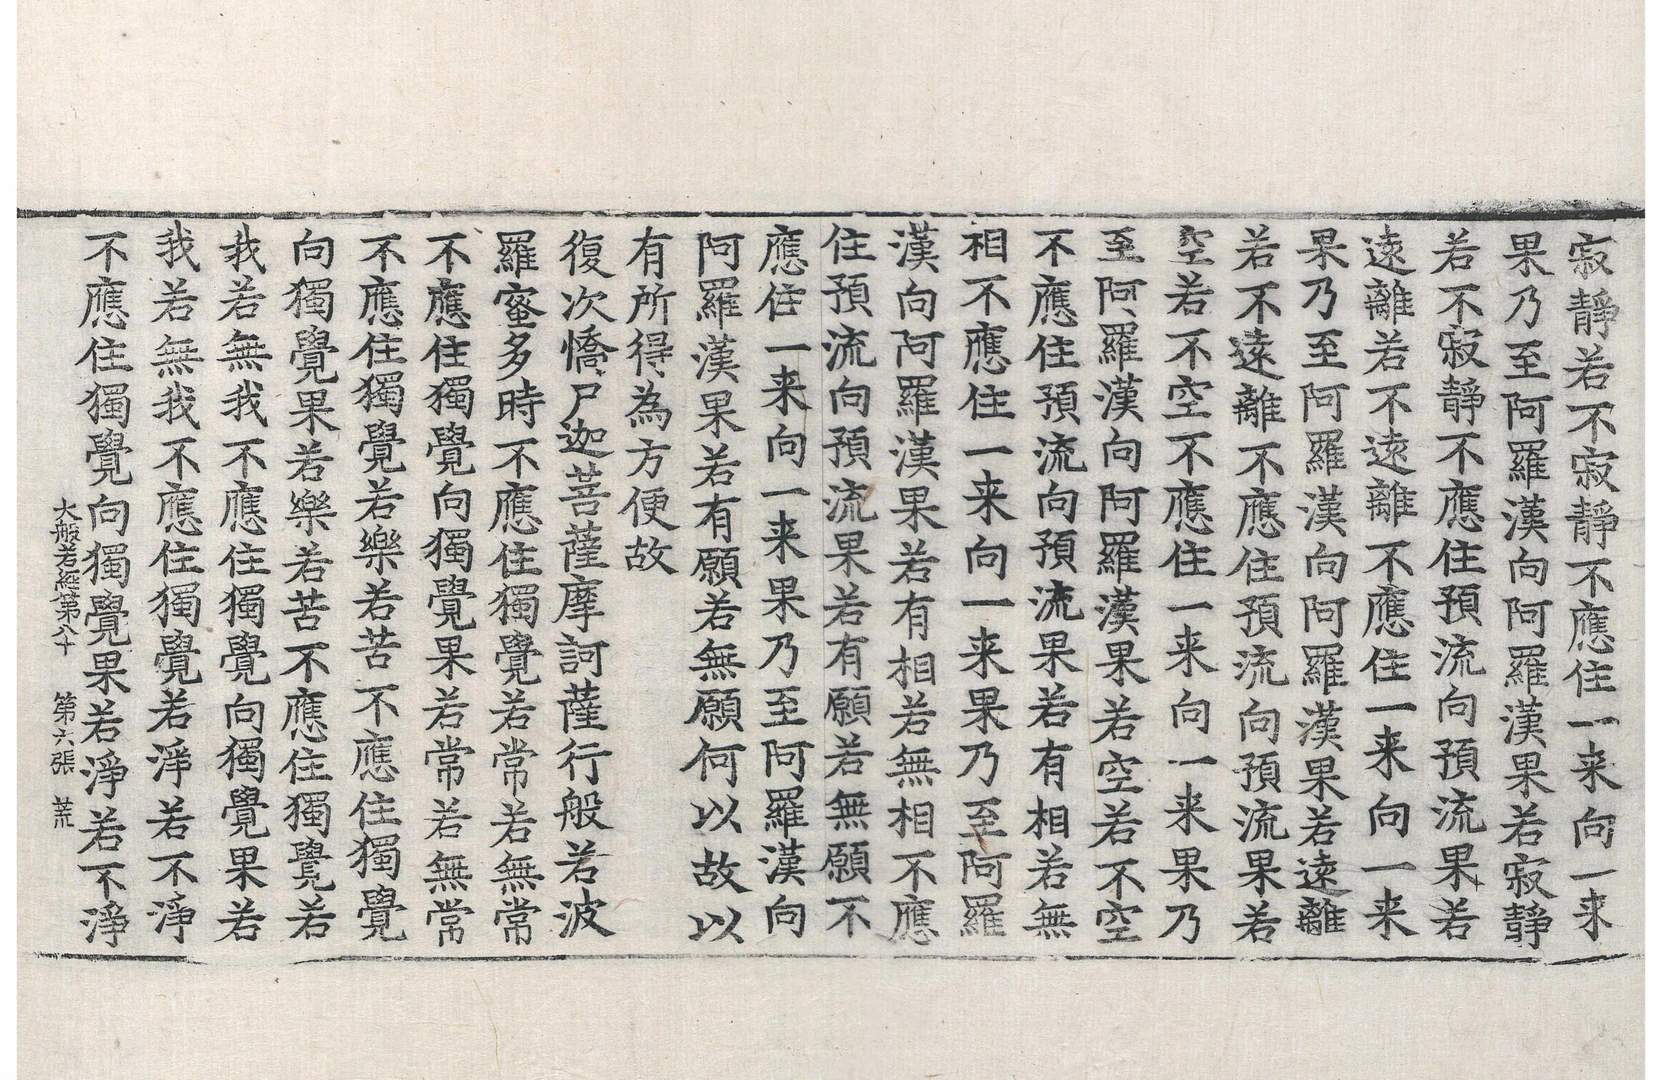 寂靜若不寂靜不應住一来向一来
果乃至阿羅漢向阿羅漢果若寂靜
若不寂靜不應住預流向預流果若
遠離若不遠離不應住一来向一来
果乃至阿羅漢向阿羅漢果若遠離
若不遠離不應住預流向預流果若
空若不空不應住一来向一来果乃
至阿羅漢向阿羅漢果若空若不空
不應住預流向預流果若有相若無
相不應住一来向一来果乃至阿羅
漢向阿羅漢果若有相若無相不應
住預流向預流果若有願若無願不
應住一来向一来果乃至阿羅漢向
阿羅漢果若有願若無願何以故以
有所得為方便故
復次憍尸迦菩薩摩訶薩行般若波
羅蜜多時不應住獨覺若常若無常
不應住獨覺向獨覺果若常若無常
不應住獨覺若樂若苦不應住獨覺
向獨覺果若樂若苦不應住獨覺若
我若無我不應住獨覺向獨覺果若
我若無我不應住獨覺若淨若不淨
不應住獨覺向獨覺果若淨若不淨
大般若經第八十 第六張 荒